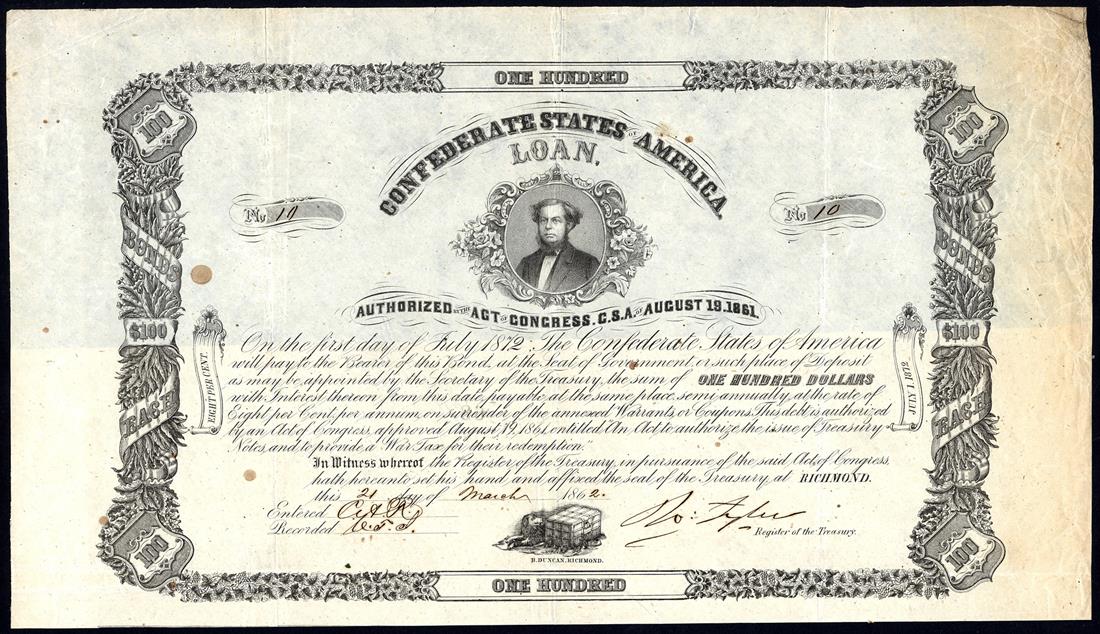 ONE HUNDRED
100
100
CONFEDERATE STATES OF AMERICA.
LOAN.
No 10
No 10
BONDS
BONDS
AUTHORIZED BY THE ACT OF CONGRESS. C.S.A. OF AUGUST 19. 1861.
$100
$100
EIGHT PER CENT.
JULY 1. 1872
EACH
EACH
On the first day of July 1872, The Confederate States of America
will pay to the Bearer of this Bond, at the Seat of Government, or such place of Deposit
as may be appointed by the Secretary of the Treasury, the sum of ONE HUNDRED DOLLARS
with Interest thereon from this date, payable, at the same place, semi-annually, at the rate of
Eight per Cent. per annum, on surrender of the annexed Warrants, or Coupons. This debt is authorized
by an Act of Congress, approved August 19, 1861, entitled "An Act to authorize the issue of Treasury
Notes, and to provide a War Tax for their redemption."
In Witness whereof, the Register of the Treasury, in pursuance of the said Act of Congress,
hath hereunto set his hand, and affixed the seal of the Treasury, at RICHMOND.
this 21 day of March 1862.
Entered
Recorded
Ro: Tyler
Register of the Treasury.
B. DUNCAN, RICHMOND.
100
100
ONE HUNDRED